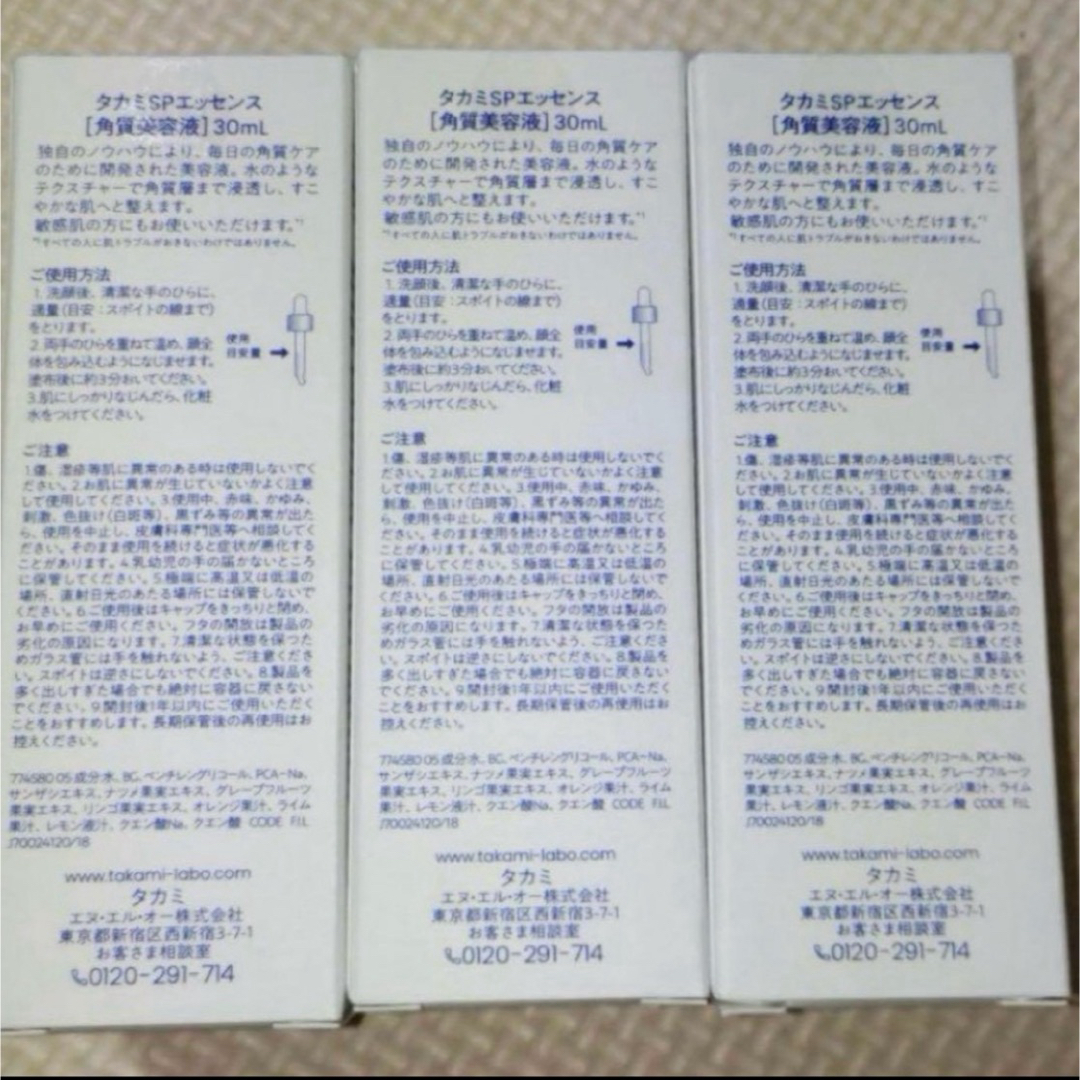 タカミSPエッセンス
[角質美容液]30mL
独自のノウハウにより、毎日の角質ケア
のために開発された美容液。水のような
テクスチャーで角質層まで浸透し、すこ
やかな肌へと整えます。
敏感肌の方にもお使いいただけます。*1
*1すべての人に肌トラブルがおきないわけではありません。
ご使用方法
1. 洗顔後、清潔な手のひらに、
適量(目安:スポイトの線まで)
をとります。
2. 両手のひらを重ねて温め、顔全
体を包み込むようになじませます。
塗布後に約3分おいてください。
3.肌にしっかりなじんだら、化粧
水をつけてください。
使用
目安量
ご注意
1.傷、湿疹等肌に異常のある時は使用しないでく
ださい。2.お肌に異常が生じていないかよく注意
して使用してください。3.使用中、赤味、かゆみ、
刺激、色抜け(白斑等)、黒ずみ等の異常が出た
ら、使用を中止し、皮膚科専門医等へ相談してく
ださい。そのまま使用を続けると症状が悪化する
ことがあります。4.乳幼児の手の届かないところ
に保管してください。5.極端に高温又は低温の
場所、直射日光のあたる場所には保管しないで
ください。6.ご使用後はキャップをきっちりと閉め、
お早めにご使用ください。フタの開放は製品の
劣化の原因になります。7.清潔な状態を保つた
めガラス管には手を触れないよう、ご注意くださ
い。スポイトは逆さにしないでください。8.製品を
多く出しすぎた場合でも絶対に容器に戻さない
でください。9.開封後1年以内にご使用いただく
ことをおすすめします。長期保管後の再使用はお
控えください。
774580 05 成分水、BG、ペンチレングリコール、PCA-Na、
サンザシエキス、ナツメ果実エキス、グレープフルーツ
果実エキス、リンゴ果実エキス、オレンジ果汁、ライム
果汁、レモン液汁、クエン酸Na、クエン酸 CODE F.I.L
J70024120/18
www.takami-labo.com
タカミ
エヌ・エル・オー株式会社
東京都新宿区西新宿3-7-1
お客さま相談室
0120-291-714
タカミSPエッセンス
[角質美容液]30mL
独自のノウハウにより、毎日の角質ケア
のために開発された美容液。水のような
テクスチャーで角質層まで浸透し、すこ
やかな肌へと整えます。
敏感肌の方にもお使いいただけます。*1
*1すべての人に肌トラブルがおきないわけではありません。
ご使用方法
1. 洗顔後、清潔な手のひらに、
適量(目安:スポイトの線まで)
をとります。
2. 両手のひらを重ねて温め、顔全
体を包み込むようになじませます。
塗布後に約3分おいてください。
3.肌にしっかりなじんだら、化粧
水をつけてください。
使用
目安量
ご注意
1.傷、湿疹等肌に異常のある時は使用しないでく
ださい。2.お肌に異常が生じていないかよく注意
して使用してください。3.使用中、赤味、かゆみ、
刺激、色抜け(白斑等)、黒ずみ等の異常が出た
ら、使用を中止し、皮膚科専門医等へ相談してく
ださい。そのまま使用を続けると症状が悪化する
ことがあります。4.乳幼児の手の届かないところ
に保管してください。5.極端に高温又は低温の
場所、直射日光のあたる場所には保管しないで
ください。6.ご使用後はキャップをきっちりと閉め、
お早めにご使用ください。フタの開放は製品の
劣化の原因になります。7.清潔な状態を保つた
めガラス管には手を触れないよう、ご注意くださ
い。スポイトは逆さにしないでください。8.製品を
多く出しすぎた場合でも絶対に容器に戻さない
でください。9.開封後1年以内にご使用いただく
ことをおすすめします。長期保管後の再使用はお
控えください。
774580 05 成分水、BG、ペンチレングリコール、PCA-Na、
サンザシエキス、ナツメ果実エキス、グレープフルーツ
果実エキス、リンゴ果実エキス、オレンジ果汁、ライム
果汁、レモン液汁、クエン酸Na、クエン酸 CODE F.I.L
J70024120/18
www.takami-labo.com
タカミ
エヌ・エル・オー株式会社
東京都新宿区西新宿3-7-1
お客さま相談室
0120-291-714
タカミSPエッセンス
[角質美容液]30mL
独自のノウハウにより、毎日の角質ケア
のために開発された美容液。水のような
テクスチャーで角質層まで浸透し、すこ
やかな肌へと整えます。
敏感肌の方にもお使いいただけます。*1
*1すべての人に肌トラブルがおきないわけではありません。
ご使用方法
1. 洗顔後、清潔な手のひらに、
適量(目安:スポイトの線まで)
をとります。
2. 両手のひらを重ねて温め、顔全
体を包み込むようになじませます。
塗布後に約3分おいてください。
3.肌にしっかりなじんだら、化粧
水をつけてください。
使用
目安量
ご注意
1.傷、湿疹等肌に異常のある時は使用しないでく
ださい。2.お肌に異常が生じていないかよく注意
して使用してください。3.使用中、赤味、かゆみ、
刺激、色抜け(白斑等)、黒ずみ等の異常が出た
ら、使用を中止し、皮膚科専門医等へ相談してく
ださい。そのまま使用を続けると症状が悪化する
ことがあります。4.乳幼児の手の届かないところ
に保管してください。5.極端に高温又は低温の
場所、直射日光のあたる場所には保管しないで
ください。6.ご使用後はキャップをきっちりと閉め、
お早めにご使用ください。フタの開放は製品の
劣化の原因になります。7.清潔な状態を保つた
めガラス管には手を触れないよう、ご注意くださ
い。スポイトは逆さにしないでください。8.製品を
多く出しすぎた場合でも絶対に容器に戻さない
でください。9.開封後1年以内にご使用いただく
ことをおすすめします。長期保管後の再使用はお
控えください。
774580 05 成分水、BG、ペンチレングリコール、PCA-Na、
サンザシエキス、ナツメ果実エキス、グレープフルーツ
果実エキス、リンゴ果実エキス、オレンジ果汁、ライム
果汁、レモン液汁、クエン酸Na、クエン酸 CODE F.I.L
J70024120/18
www.takami-labo.com
タカミ
エヌ・エル・オー株式会社
東京都新宿区西新宿3-7-1
お客さま相談室
0120-291-714